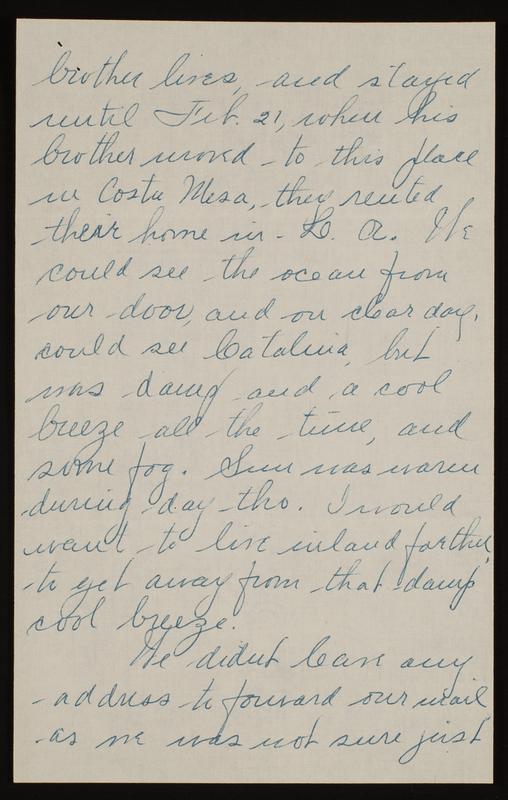 brother lives, and stayed
until Feb. 21, when his
brother moved to this place
in Costa Mesa, they rented
their home in L. A. We
could see the ocean from
our door, and on clear day,
could see Catalina, but
was damp and a cool
breeze all the time, and
some fog. Sun was warm
during day tho. I would
want to live inland farther,
to get away from that damp
cool breeze.
We didnt leave any
address to forward our mail
as we was not sure just